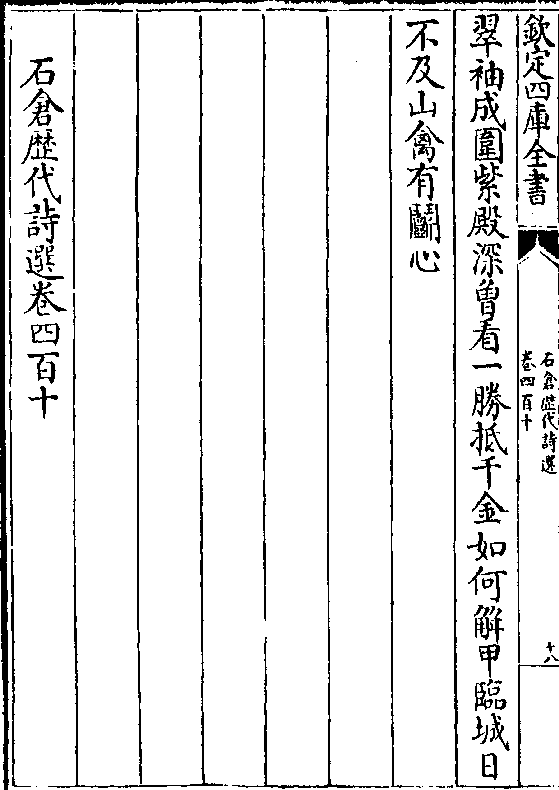 欽定四庫全書
石倉歷代詩選
卷四百十
十八
翠袖成圍紫殿深曾看一勝抵千金如何解甲臨城日
不及山禽有鬭心
石倉歷代詩選卷四百十